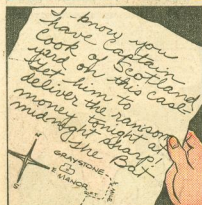 I know you
have Captain
Cook of Scotland
yard on this case.
Get him to
deliver the ransom
money tonight at
midnight sharp!
The Bat
N
GRAYSTONE
MANOR